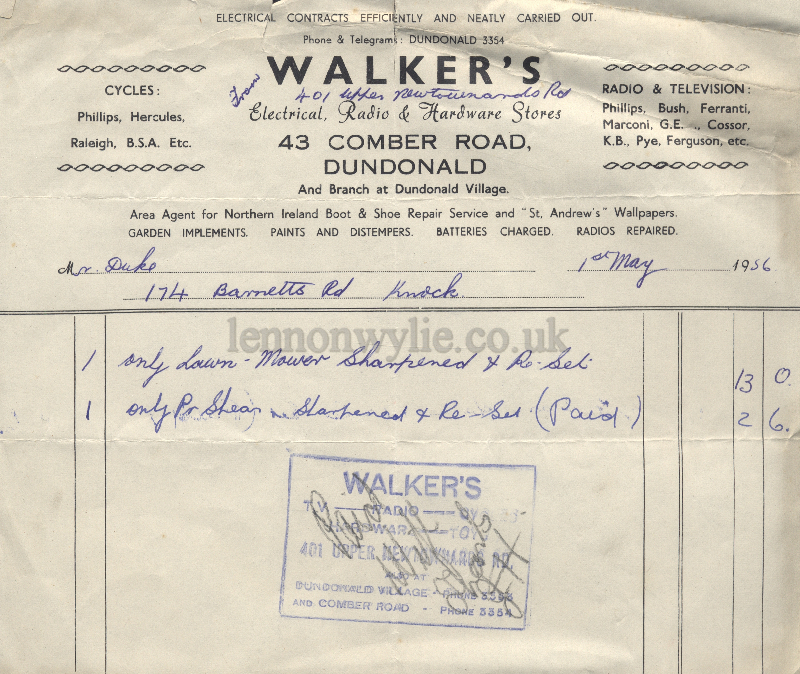 ELECTRICAL CONTRACTS EFFICIENTLY AND NEATLY CARRIED OUT.
Phone & Telegrams: DUNDONALD 3354
WALKER'S
From 401 Upper Newtownards Rd
Electrical, Radio & Hardware Stores
43 COMBER ROAD,
DUNDONALD
And Branch at Dundonald Village.
CYCLES:
Phillips, Hercules,
Raleigh, B.S.A. Etc.
RADIO & TELEVISION:
Phillips, Bush, Ferranti,
Marconi, G.E ., Cossor,
K.B., Pye, Ferguson, etc.
Area Agent for Northern Ireland Boot & Shoe Repair Service and "St, Andrew's" Wallpapers.
GARDEN IMPLEMENTS. PAINTS AND DISTEMPERS. BATTERIES CHARGED. RADIOS REPAIRED.
Mr. Duke 1st May 1956
174 Barnetts Rd Knock.
lennonwylie.co.uk
1 only Lawn-Mower Sharpened & Re-Set 13 0.
1 only Pr Shears Sharpened & Re-Set (Paid) 2 6.
WALKER'S
RADIO
401 UPPER NEWTOWNARDS RD.
ALSO AT
DUNDONALD VILLAGE - PHONE 3354
AND COMBER ROAD - PHONE 3354
Paid